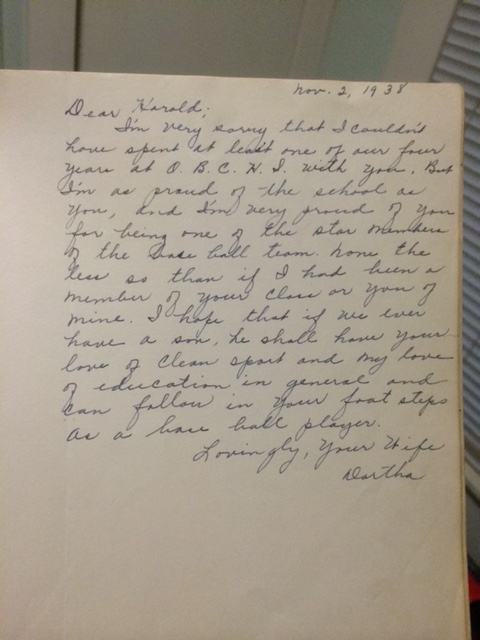 Nov. 2, 1938
Dear Harold;
I'm very sorry that I couldn't
have spent at least one of our four
years at O. B. C. H. S. with you. But
I'm as proud of the school as
you, and I'm very proud of you
for being one of the star members
of the base ball team. None the
less so than if I had been a
member of your class or you of
mine. I hope that if we ever
have a son, he shall have your
love of clean sport and my love
of education in general and
can follow in your foot steps
as a base ball player.
Lovingly, Your Wife
Dortha